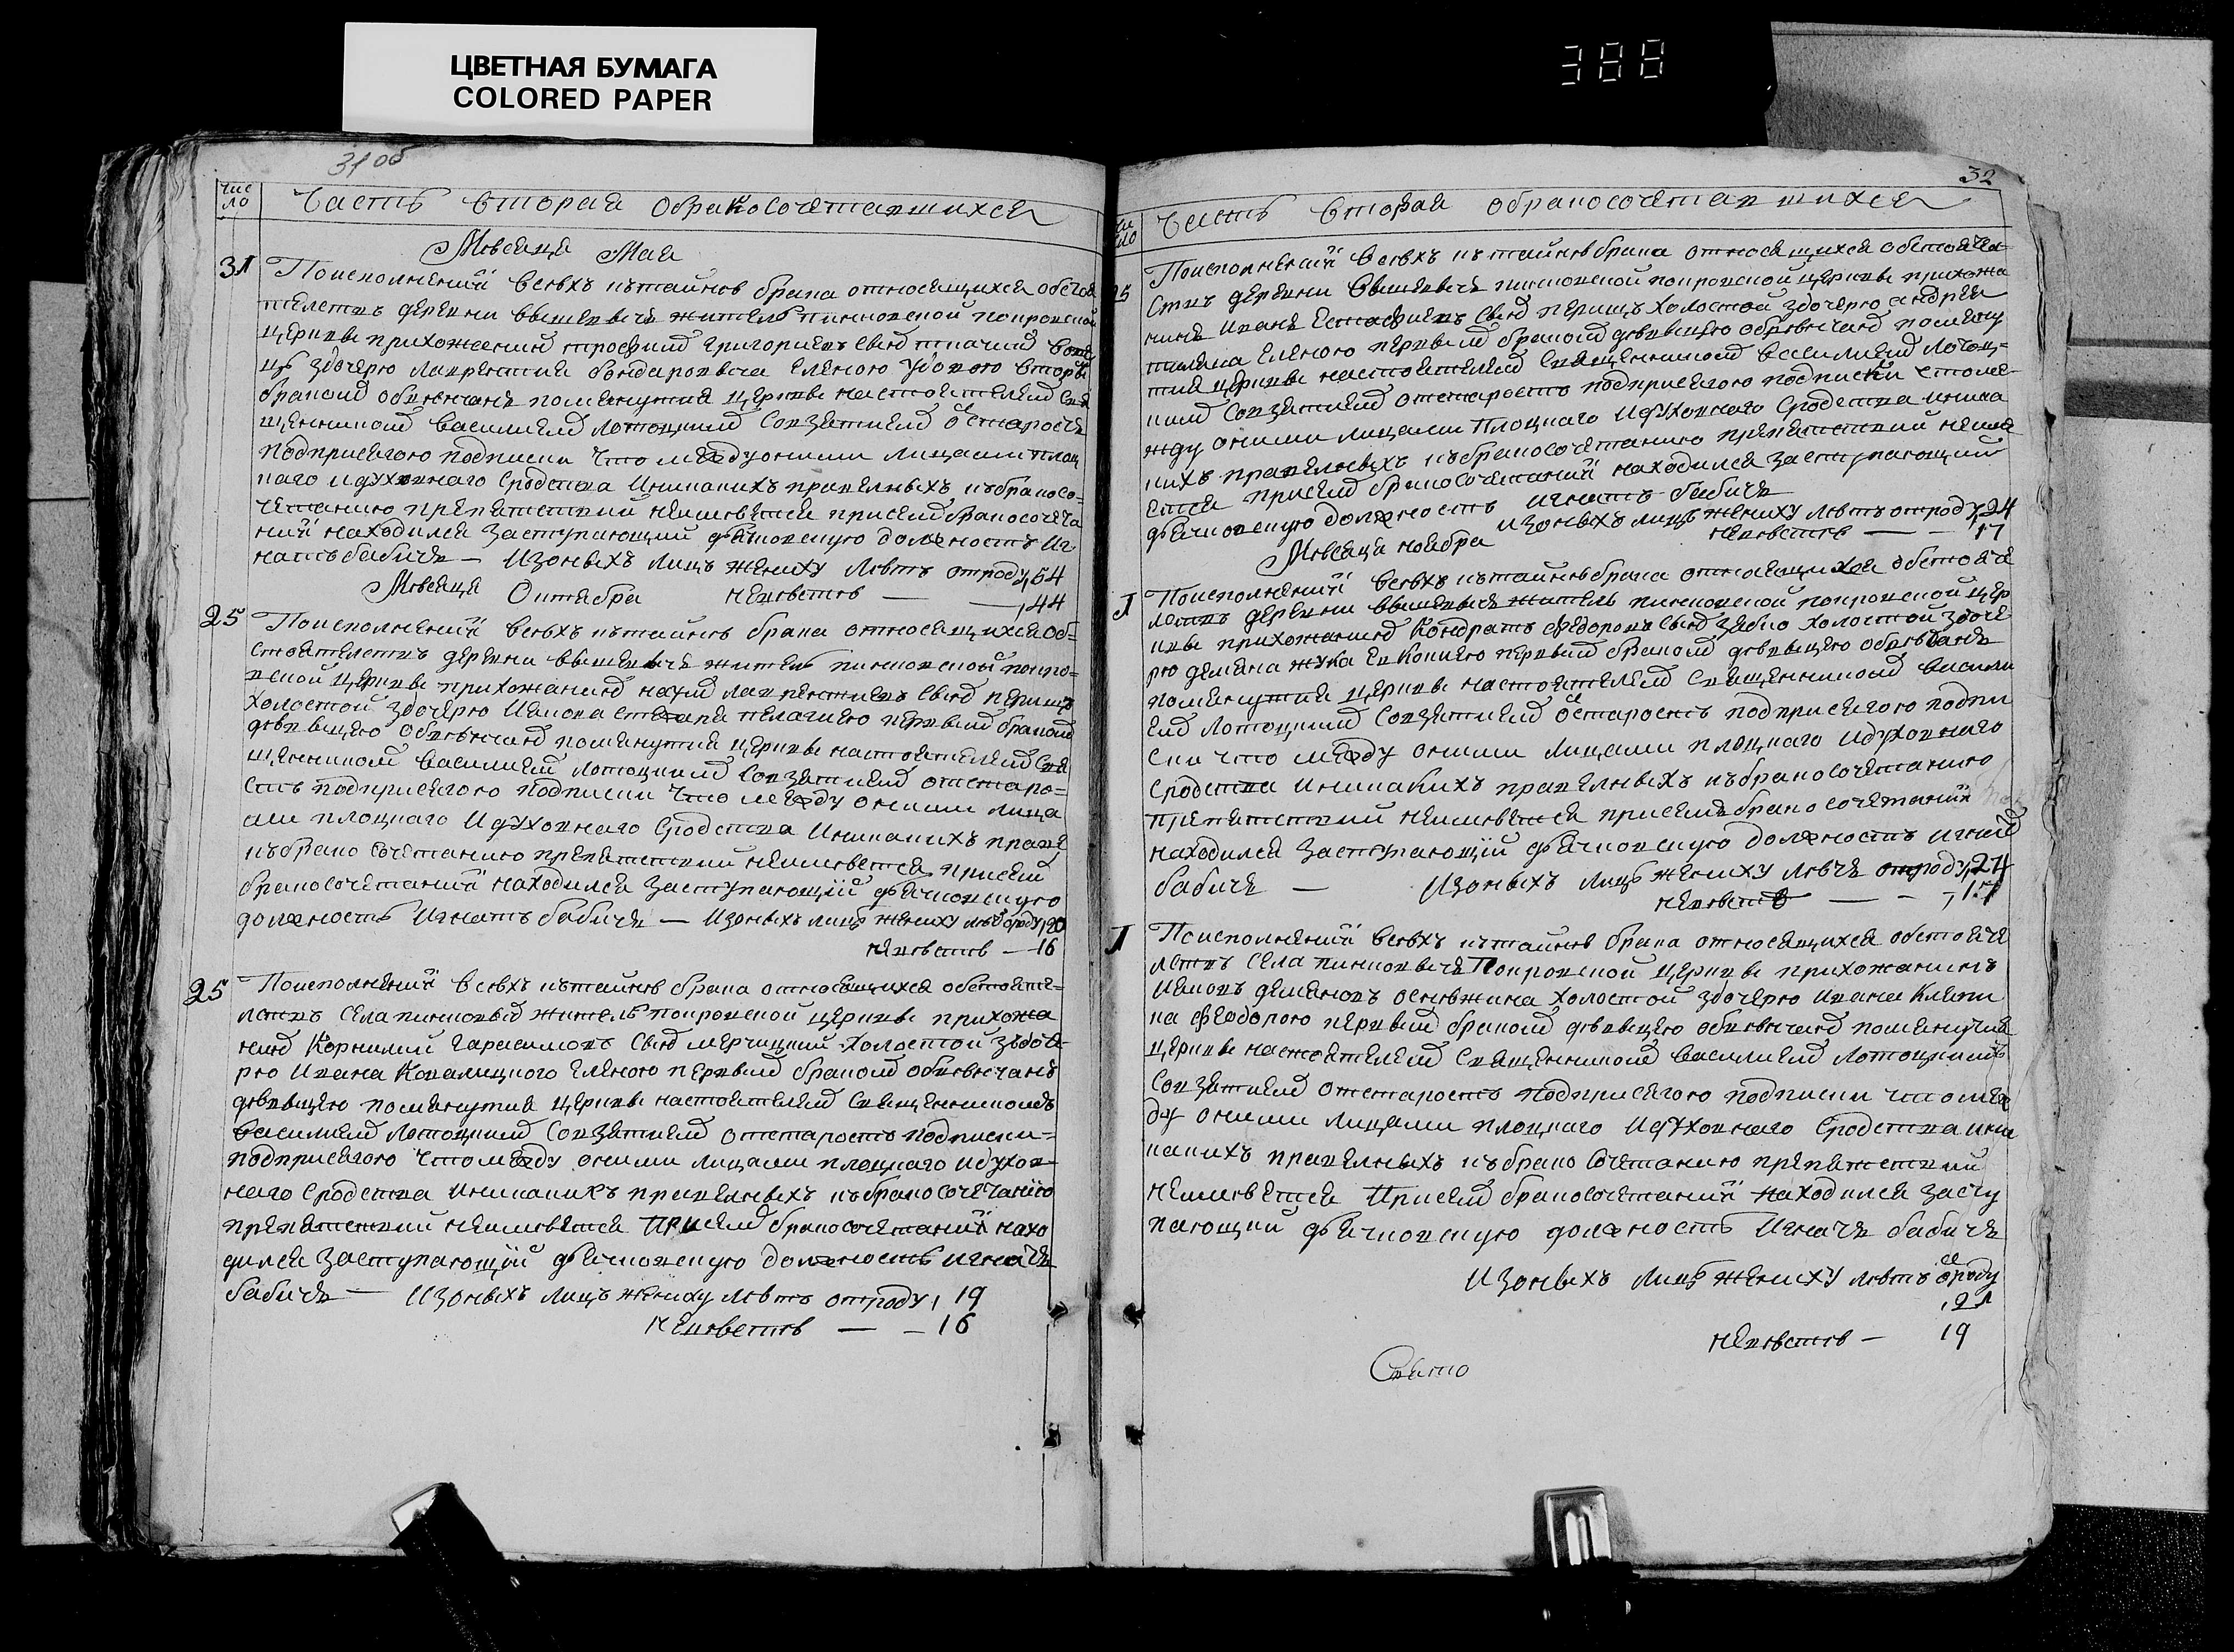 ЦВЕТНАЯ БУМАГА
COLORED PAPER
388
31 об
Чис
ло
Часть вторая обракосочетавшихся
Мѣсяца Мая
31 Поисполнений всѣхъ ктайнѣ брака относящихся обстоя
телствъ деревни Вышевичъ житель пинковской покровской
церкви прихожанинъ трофимъ григориевъ сынъ ткачикъ вдо
ць здочерю лаврентия бондаровича еленою удовою вторы
бракомъ обвѣнчанъ помянутия церкви настоятелемъ свя
щенникомъ василиемъ лотоцкимъ совзятиемъ ѿстаросте
подприсягою подписки что между оними лицами плоц
каго идуховнаго сродства иникакихъ правелныхъ кбракосо=
четанию препятствий неимѣется присемъ бракосочета
ний находился заступающий дьячковскую должность иг
натъ бабичъ — изоныхъ лицъ жениху лѣтъ отроду, 54
Мѣсяца Октябра невѣстѣ — —, 44
25 Поисполнений всѣхъ ктайнѣ брака относящихся об=
стоятелствъ деревни вышевичъ житель пинковской покро=
вской церкви прихожанинъ наумъ лаврентиевъ сынъ перишъ
холостой здочерю иакова степана пелагиею первымъ бракомъ
дѣвицею обвѣнчанъ помянутия церкви настоятелемъ свя
щенникомъ василиемъ лотоцкимъ совзятиемъ отстаро=
стъ подприсягою подписки что между оними лица
ами плоцкаго идуховнаго сродства иникакихъ праве
кбрако сочетанию препятствий неимѣется присемъ
бракосочетаний находился заступающий дьячковскую
должность игнатъ бабичъ — изоныхъ лицъ жениху лѣтъ ѿроду, 20
невѣстѣ — 16
25 Поисполнений всѣхъ ктайнѣ брака относящихся обстояте=
лствъ села пинковичъ житель покровской церкви прихожа
нинъ Корнилий гарасимовъ сынъ мерчицкий холостой здоче
рю ивана Ковалицкого еленою первымъ бракомъ обвѣнчанъ
дѣвицею помянутия церкви настоятелемъ священникомъ
василиемъ лотоцкимъ совзятиемъ отстаростъ подписки=
подприсягою что между оними лицами плоцкаго идухов
наго сродства иникакихъ правелныхъ кбракосочетанию
препятствий неимѣется присемъ бракосочетаний нахо
дился заступающий дьячковскую должность игнатъ
бабичъ — изоныхъ лицъ жениху лѣтъ отроду, 19
невѣстѣ — — 16
32
Часть вторая обракосочетавшихся
25 Поисполнений всѣхъ ктайнѣ брака относящихся обстояте
ствъ деревни Вышевичъ пинковской покровской церкви прихожа
нинъ иванъ Естафиевъ сынъ перишъ холостой здочерю андрея
еленою первымъ бракомъ дѣвицею обвѣнчанъ помяну
тия церкви настоятелемъ священникомъ василиемъ лотоц=
кимъ совзятиемъ отстаростъ подприсягою подписки чтоме
жду оними лицами плоцкаго идуховнаго сродства иника
кихъ правелныхъ кбракосочетанию препятствий неимѣ
ется присемъ бракосочетаний находился заступающий
дьячковскую должность игнатъ бабичъ
изоныхъ лицъ жениху лѣтъ отроду, 24
Мѣсяца ноября невѣстѣ — — 17
1 Поисполнений всѣхъ ктайнѣ брака относящихся обстояте
лствъ деревни вышевичъ житель пинковской покровской цер
кви прихожанинъ Кондратъ федоровъ сынъ зябко холостой здоче
рю демяна жука первымъ бракомъ дѣвицею обвѣнчанъ
помянутия церкви настоятелемъ священникомъ васили
емъ лотоцкимъ совзятиемъ ѿстаростъ подприсягою подпи
ски что между оними лицами плоцкаго идуховнаго
сродства иникакихъ правелныхъ кбракосочетанию
препятствий неимѣется присемъ бракосочетаний
находился заступающий дьячковскую должность игнат
бабичъ — изоныхъ лицъ жениху лѣтъ отроду, 24
невѣстѣ — —, 17
1 Поисполнений всѣхъ ктайнѣ брака относящихся обстояте
лствъ села пинковичъ Покровской церкви прихожанинъ
иаковъ демяновъ холостой здочерю ивана
феодорою первымъ бракомъ дѣвицею обвѣнчанъ помянутия
церкви настоятелемъ священникомъ василиемъ лотоцкимъ
совзятиемъ отстаростъ подприсягою подписки что меж
ду оними лицами плоцкаго идуховнаго сродства ини
какихъ правелныхъ кбрако сочетанию препятствий
неимѣется присемъ бракосочетаний находился засту
пающий дьячковскую должность игнатъ бабичъ
изоныхъ лицъ жениху лѣтъ ѿроду
, 21
невѣстѣ — 19